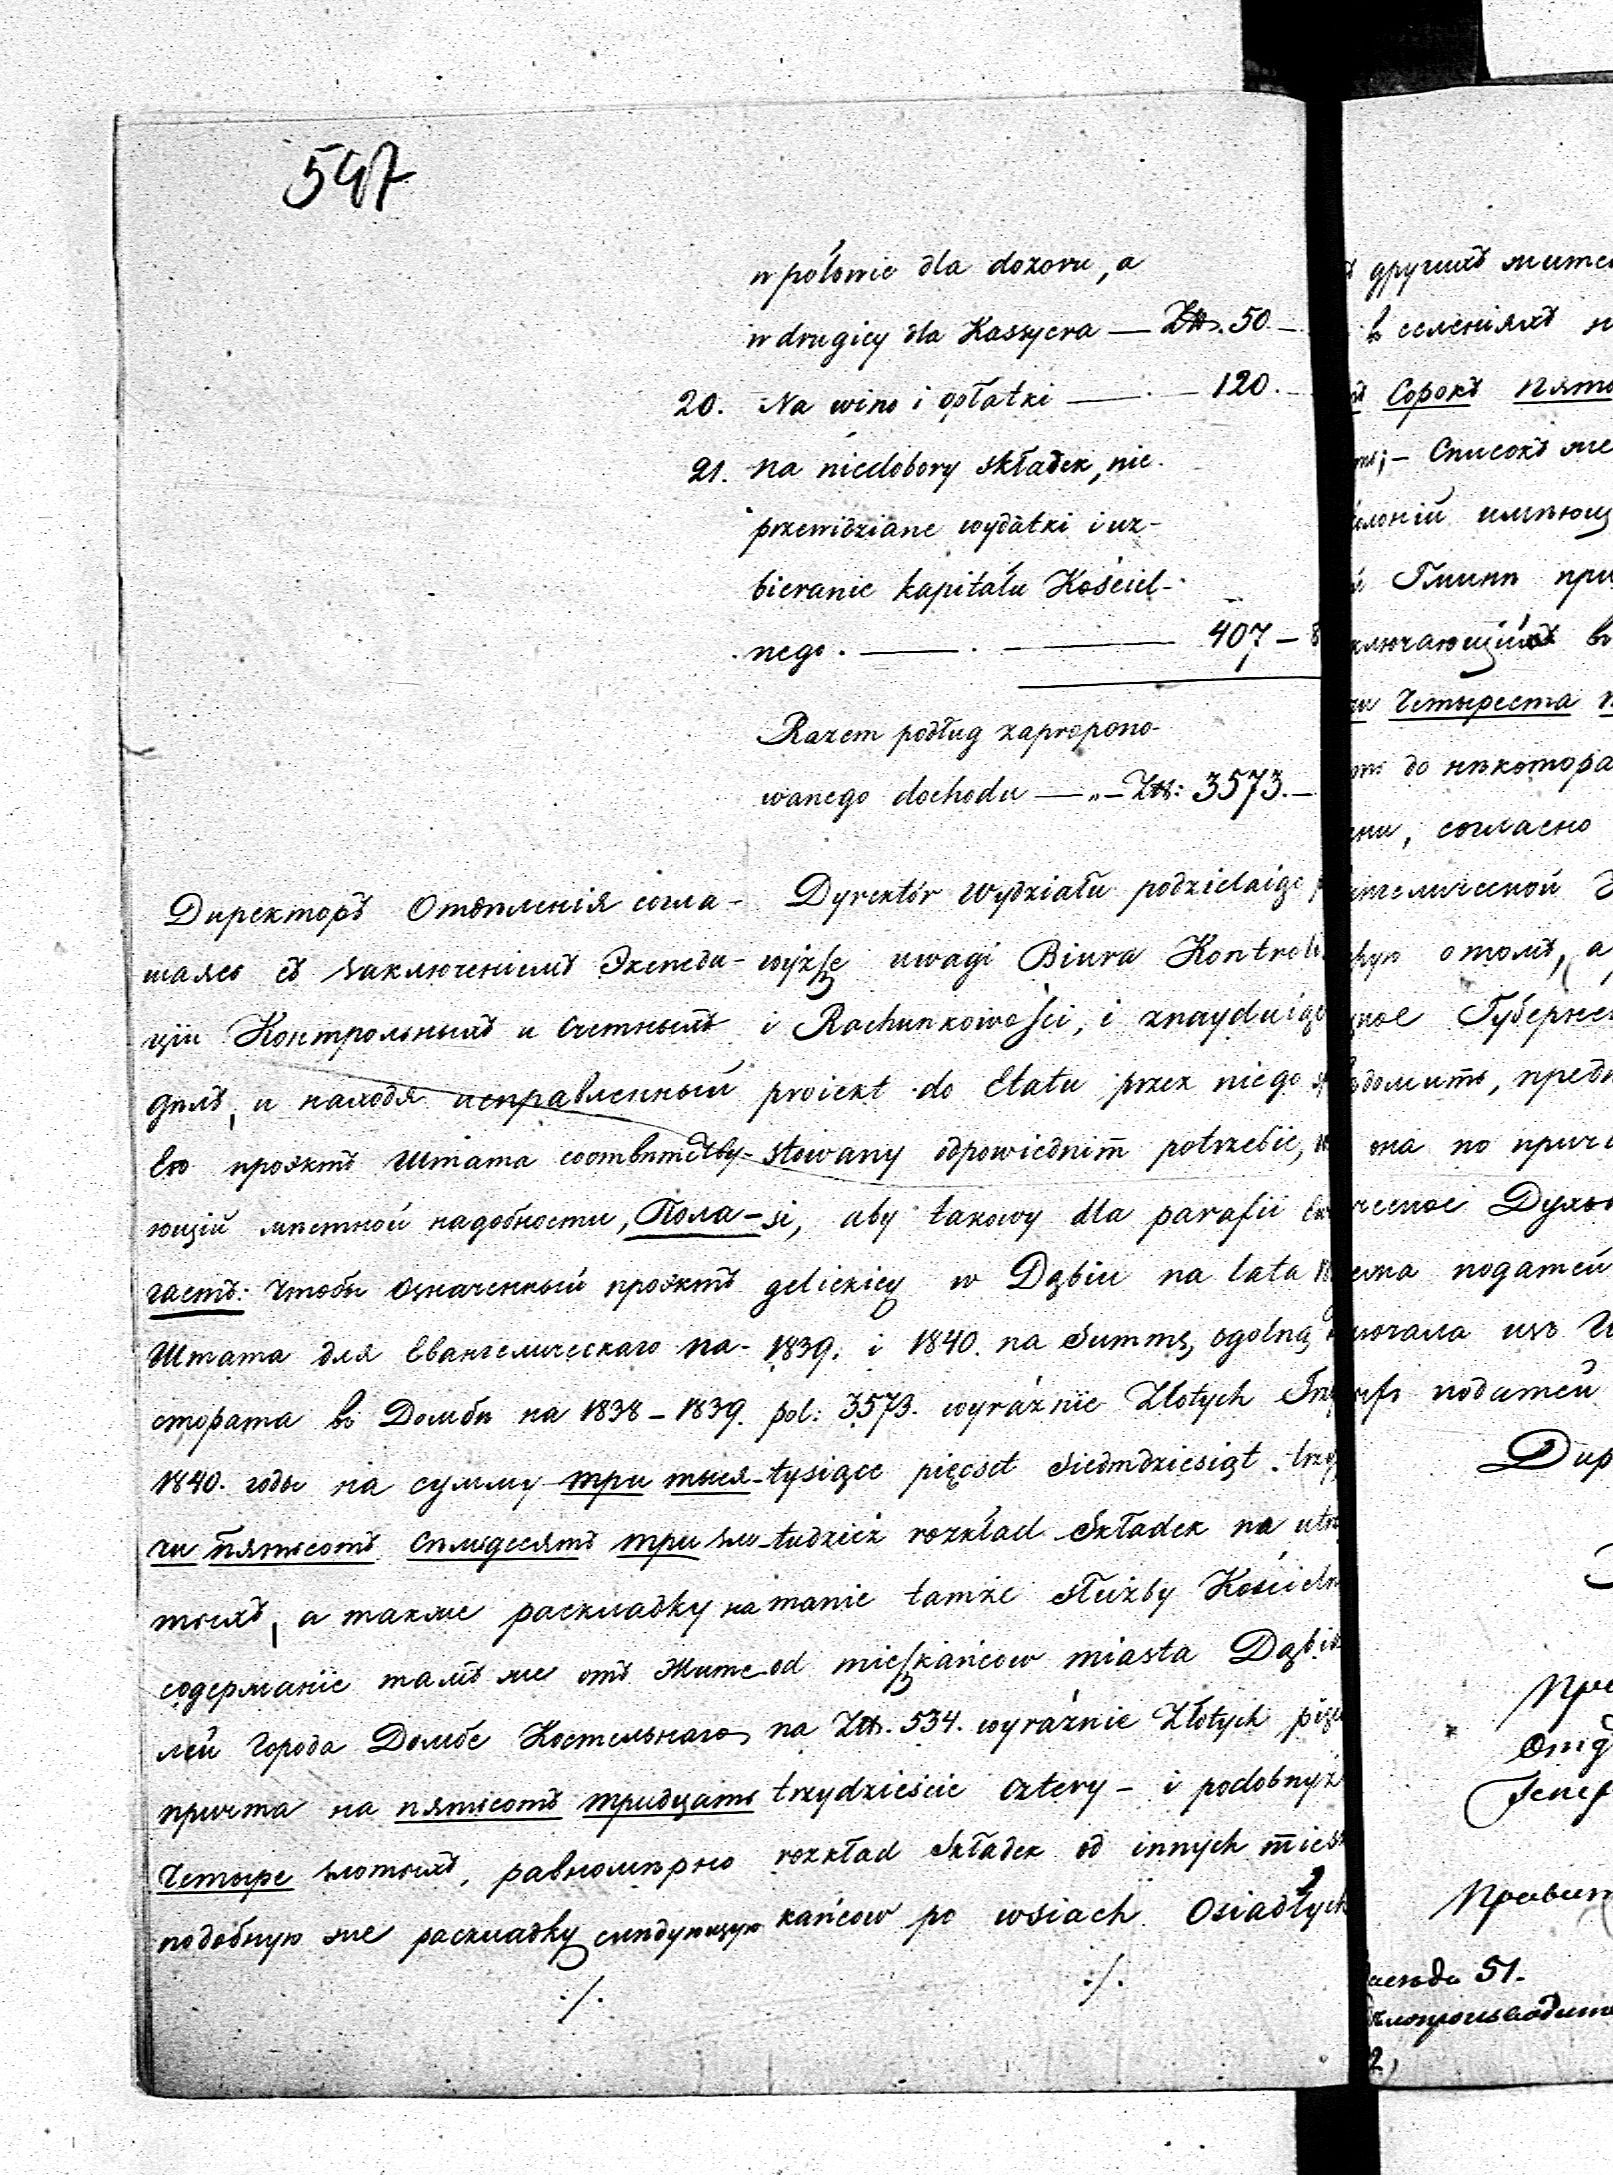 547
w połowie dla dozoru, a
w drugiey dla Kassyera — Złt. 50. —
20. Na wino i opłatki — — 120. —
21. Na niedobory składek, nie
przewidziane wydatki i uz-
bieranie kapitału Kościel-
nego. — — 407 – 8
Razem podług zapropono-
wanego dochodu — „ – Złt: 3573. –
Директоръ Отдѣленія согла-
шаясь съ заключеніемъ Экспеди-
ціи Контрольныхъ и Счетныхъ
дѣлъ, и находя исправленный
Ею проэктъ Штата соотвѣтству-
ющій мѣстной надобности, Пола-
гаетъ: Чтобы означенный проэктъ
Штата для Евангелическаго Па-
стората въ Домбѣ на 1838 – 1839.
1840. годы на сумму три тыся-
чи пятьсотъ семьдесятъ три зло-
тыхъ, а также раскладку на
содержаніе тамъ же отъ Жите-
лей Города Домбе Костельнаго
причта на пятьсотъ тридцать
Четыре злотыхъ, равномѣрно
подобную же раскладку слѣдующую
./.
Dyrektór Wydziału podzielaiąc
wyższe uwagi Biura Kontroli
i Rachunkowości, i znayduiąc
proiekt do Etatu przez niego
stowany odpowiednim potrzebie,
si, aby takowy dla parafii Ewa
gelickiey w Dąbiu na lata
1839. i 1840. na Summę ogolną
pol: 3573. wyraźnie Złotych Trzy
tysiące pięcset siedmdziesiąt trzy
tudzież rozkład Składek na utrzy
manie tamże służby Kościeln
od mieszkańcow miasta Dąbia
na Złt. 534. wyraźnie Złotych pięć
trzydzieście cztery – i podobnyż
rozkład Składek od innych miesz
kańcow po wsiach Osiadłych
./.
другихъ жител
въ селеніяхъ н
Сорокъ Пять
Списокъ же
имѣющ
Гминѣ при
ключающійся во
Четыреста
до нѣкотора
согласно
ангелической
о томъ, а
ное Губернс
домить, предп
она по прич
ческое Духов
подател
ючала изъ
податей
Дир
Правит
51.
Дѣлопроизводит